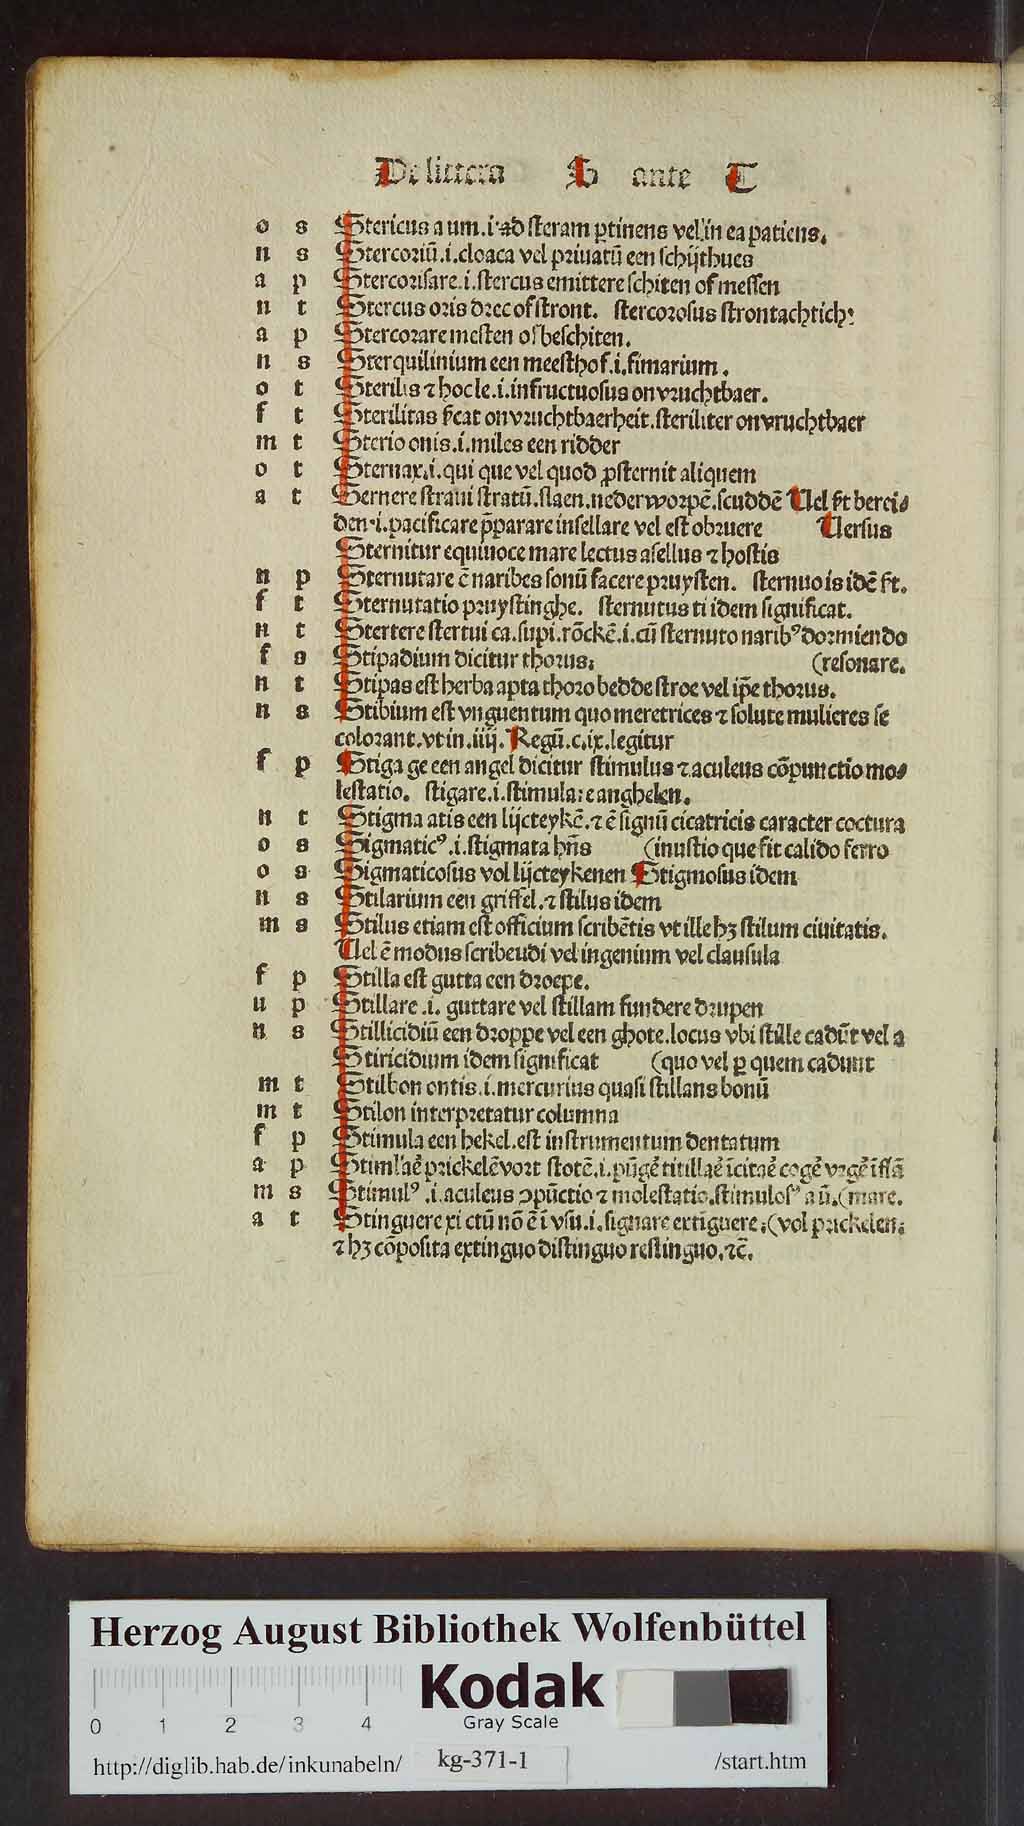 De littera S ante T
o s Stericus a um .i. ad steram ꝑtinens vel in ea patiens.
n s Stercoriū .i. cloaca vel priuatū een schijthues
a p Stercorisare .i. stercus emittere schiten of messen
n t Stercus oris drec of stront. stercorosus strontachtich
a p Stercorare mesten of beschiten.
n s Sterquilinium een meesthof .i. fimarium.
o t Sterilis ⁊ hoc le .i. infructuosus onvruchtbaer.
f t Sterilitas s̄cat onvruchtbaerheit. steriliter onvruchtbaer
m t Sterio onis .i. miles een ridder
o t Sternax .i. qui que vel quod ꝓsternit aliquem
a t Sernere straui stratū. slaen. nederworpē. scuddē Uel s̄t berei⸗
den .i. pacificare p̄parare insellare vel est obruere Uersus
Sternitur equiuoce mare lectus asellus ⁊ hostis
n p Sternutare ē naribes sonū facere pruysten. sternuo is idē s̄t.
f t Sternutatio pruystinghe. sternutus ti idem significat.
n t Stertere stertui ca. supi. rōckē .i. cū sternuto naribꝰ dormiendo
f s Stipadium dicitur thorus. (resonare.
n t Stipas est herba apta thoro bedde stroe vel ip̄e thorus.
n s Stibium est vnguentum quo meretrices ⁊ solute mulieres se
colorant. vt in .iiij. Regū. c. ix. legitur
f p Stiga ge een angel dicitur stimulus ⁊ aculeus cōpunctio mo⸗
lestatio. stigare .i. stimulare anghelen.
n t Stigma atis een lijcteykē. ⁊ ē signū cicatricis caracter coctura
o s Sigmaticꝰ .i. stigmata hn̄s (inustio que fit calido ferro
o s Sigmaticosus vol lijcteykenen Stigmosus idem
n s Stilarium een griffel. ⁊ stilus idem
m s Stilus etiam est officium scribētis vt ille hꝫ stilum ciuitatis.
Uel ē modus scribeudi vel ingenium vel clausula
f p Stilla est gutta een droepe.
u p Stillare .i. guttare vel stillam fundere drupen
n s Stillicidiū een droppe vel een ghote. locus vbi stille cadūt vel a
Stiricidium idem significat (quo vel ꝑ quem cadunt
m t Stilbon ontis .i. mercurius quasi stillans bonū
m t Stilon interpretatur columna
f p Stimula een hekel. est instrumentum dentatum
a p Stiml'aē prickelē vort stotē .i. pūgē titillaē īcitaē cogē vrgē īflā
m s Stimulꝰ .i. aculeus ɔpūctio ⁊ molestatio. stimulosꝰ a ū. (mare.
a t Stinguere xi ctū nō ē ī vsu .i. signare extīguere. (vol prickelen.
⁊ hꝫ cōposita extinguo distinguo restinguo. ⁊c̄.
Herzog August Bibliothek Wolfenbüttel
Kodak
Gray Scale
0 1 2 3 4
http://diglib.hab.de/inkunabeln/ kg-371-1 /start.htm